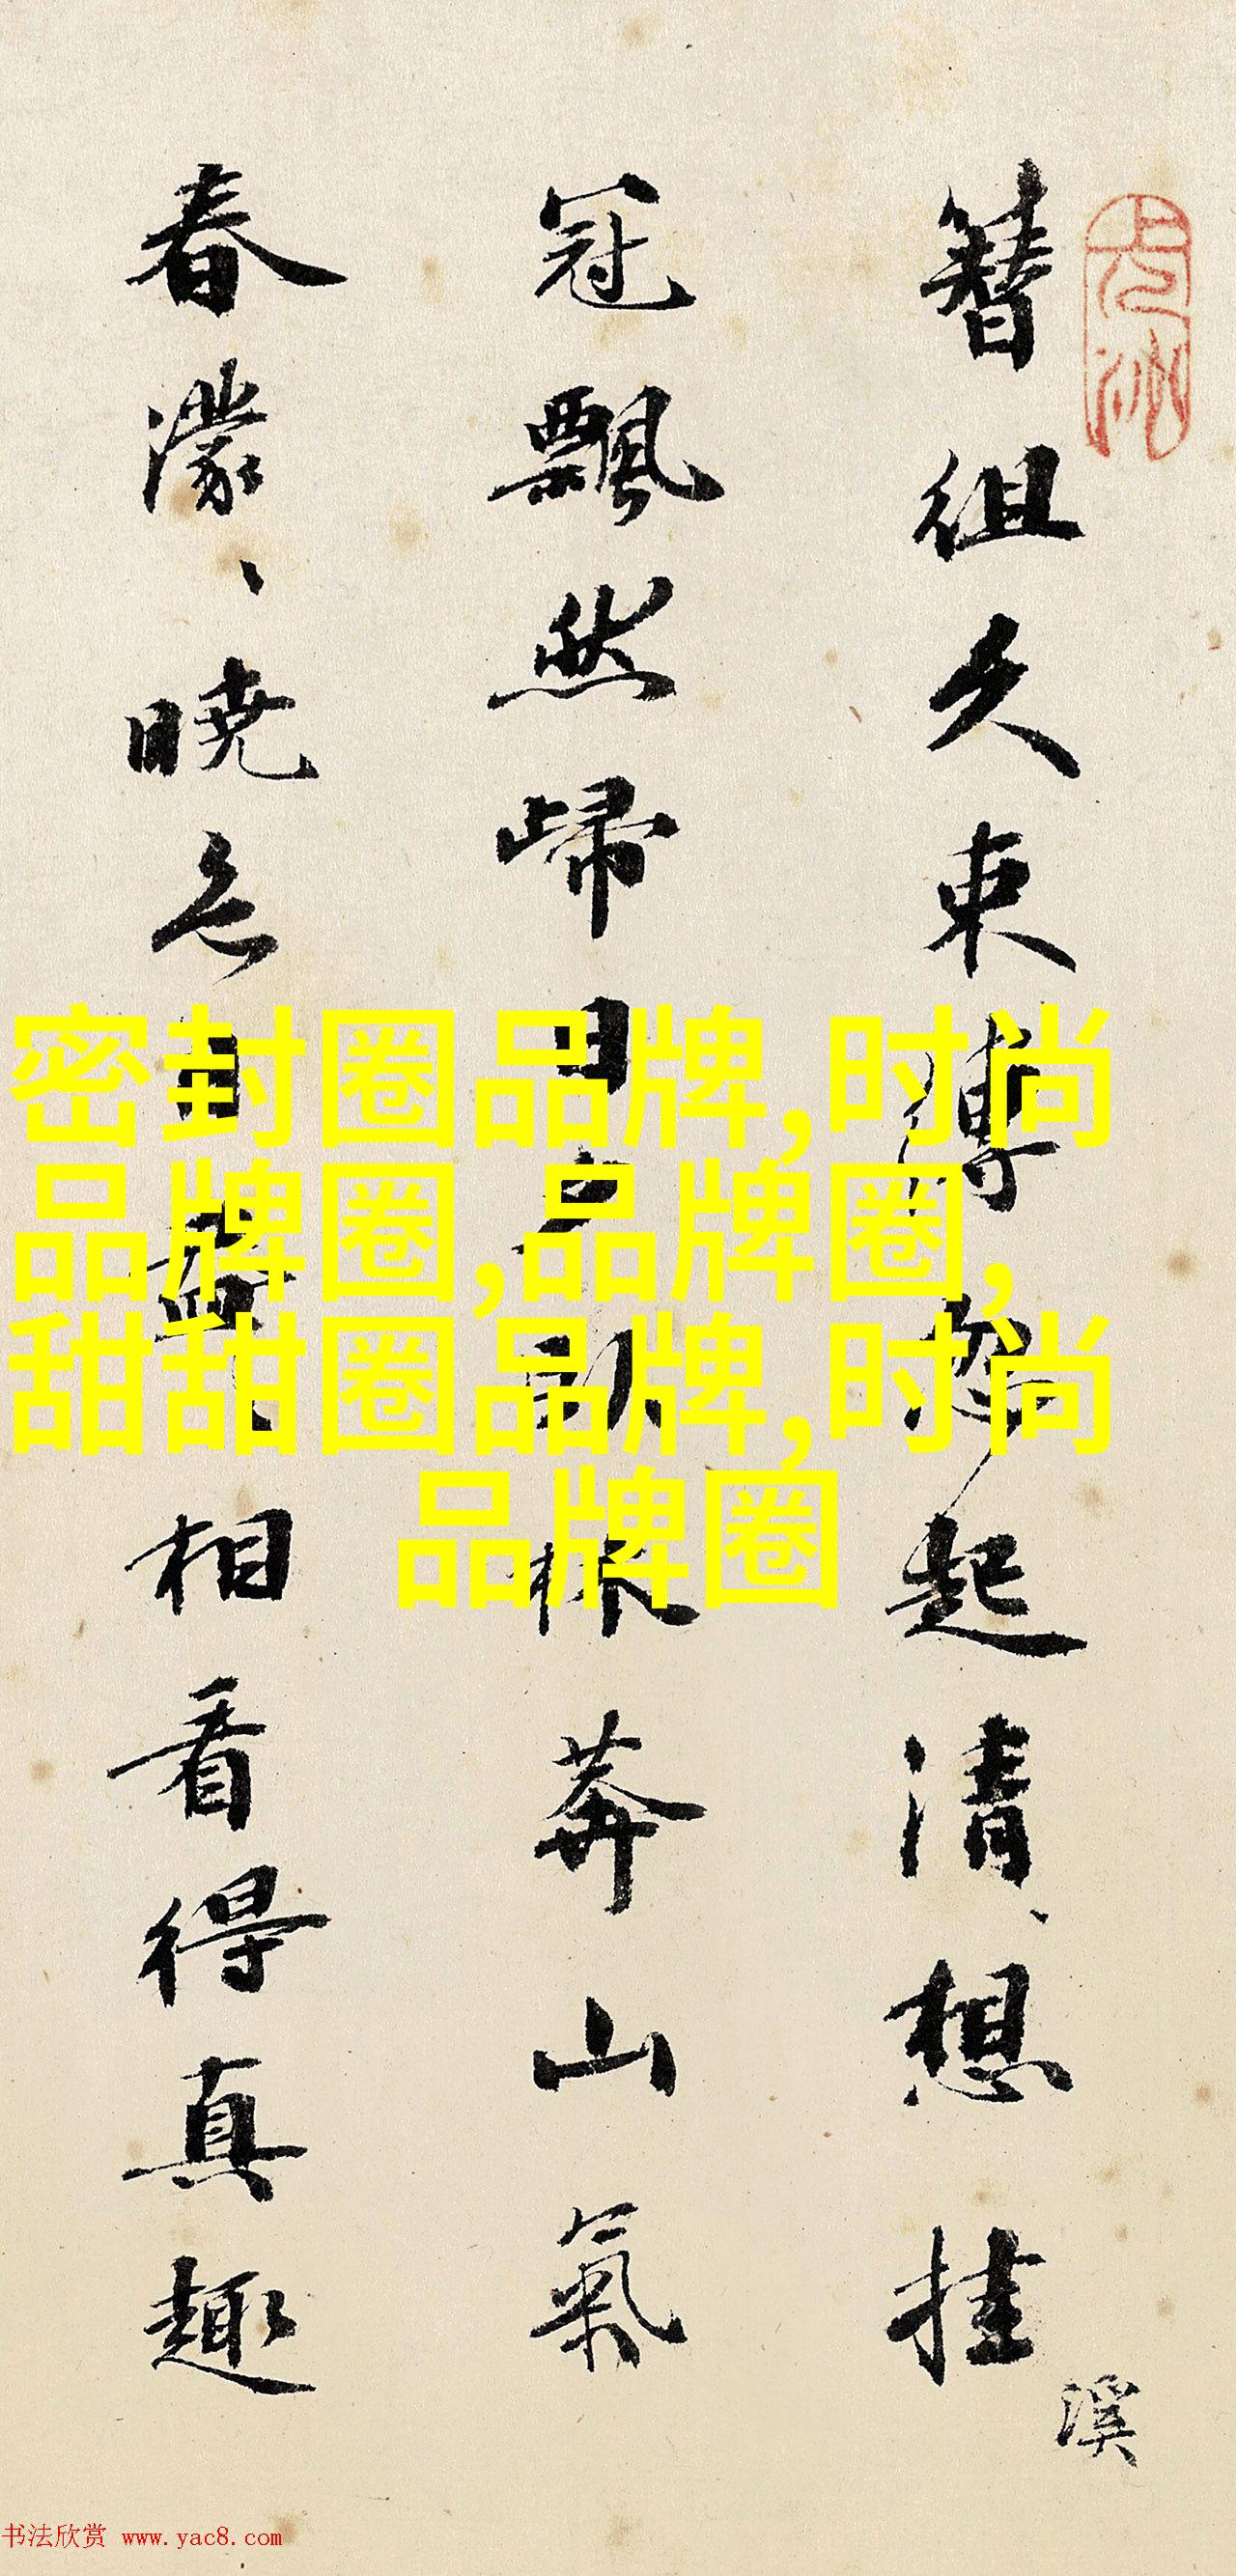 簪組久束縛起清、想挂
溪
冠飄然歸日夕臥林莽山氣
春濛、曉相看得真趣
密封圈品牌,时尚
品牌圈,品牌圈,
甜甜圈品牌,时尚
品牌圈
书法欣赏 www.yac8.com